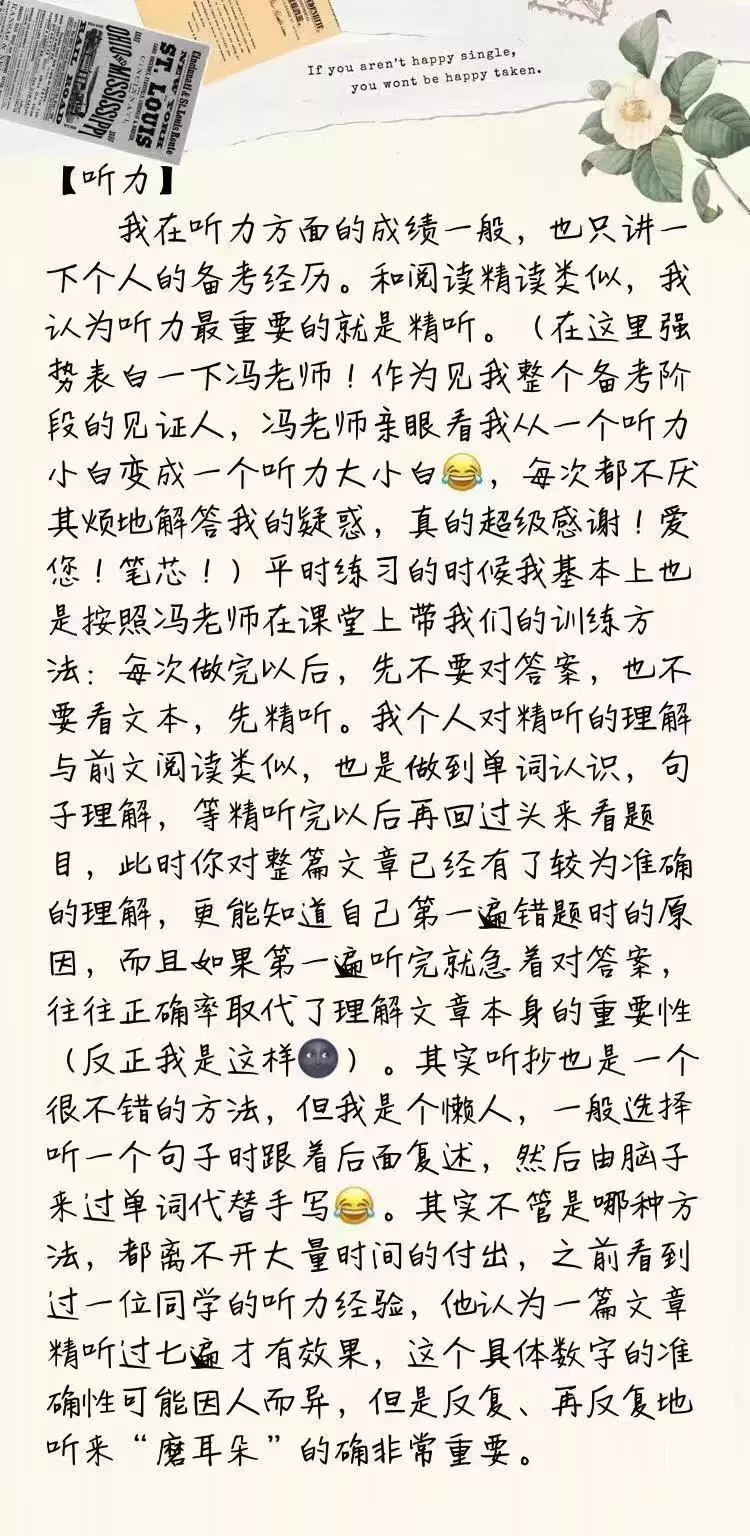 NEW YORK
ST. LOUIS
OHIO AND MISSISSIPPI
RAIL ROAD
If you aren't happy single,
you wont be happy taken.
【听力】
我在听力方面的成绩一般，也只讲一
下个人的备考经历。和阅读精读类似，我
认为听力最重要的就是精听。（在这里强
势表白一下冯老师！作为见我整个备考阶
段的见证人，冯老师亲眼看我从一个听力
小白变成一个听力大小白😂，每次都不厌
其烦地解答我的疑惑，真的超级感谢！爱
您！笔芯！）平时练习的时候我基本上也
是按照冯老师在课堂上带我们的训练方
法：每次做完以后，先不要对答案，也不
要看文本，先精听。我个人对精听的理解
与前文阅读类似，也是做到单词认识，句
子理解，等精听完以后再回过头来看题
目，此时你对整篇文章已经有了较为准确
的理解，更能知道自己第一遍错题时的原
因，而且如果第一遍听完就急着对答案，
往往正确率取代了理解文章本身的重要性
（反正我是这样🌚）。其实听抄也是一个
很不错的方法，但我是个懒人，一般选择
听一个句子时跟着后面复述，然后由脑子
来过单词代替手写😂。其实不管是哪种方
法，都离不开大量时间的付出，之前看到
过一位同学的听力经验，他认为一篇文章
精听过七遍才有效果，这个具体数字的准
确性可能因人而异，但是反复、再反复地
听来“磨耳朵”的确非常重要。